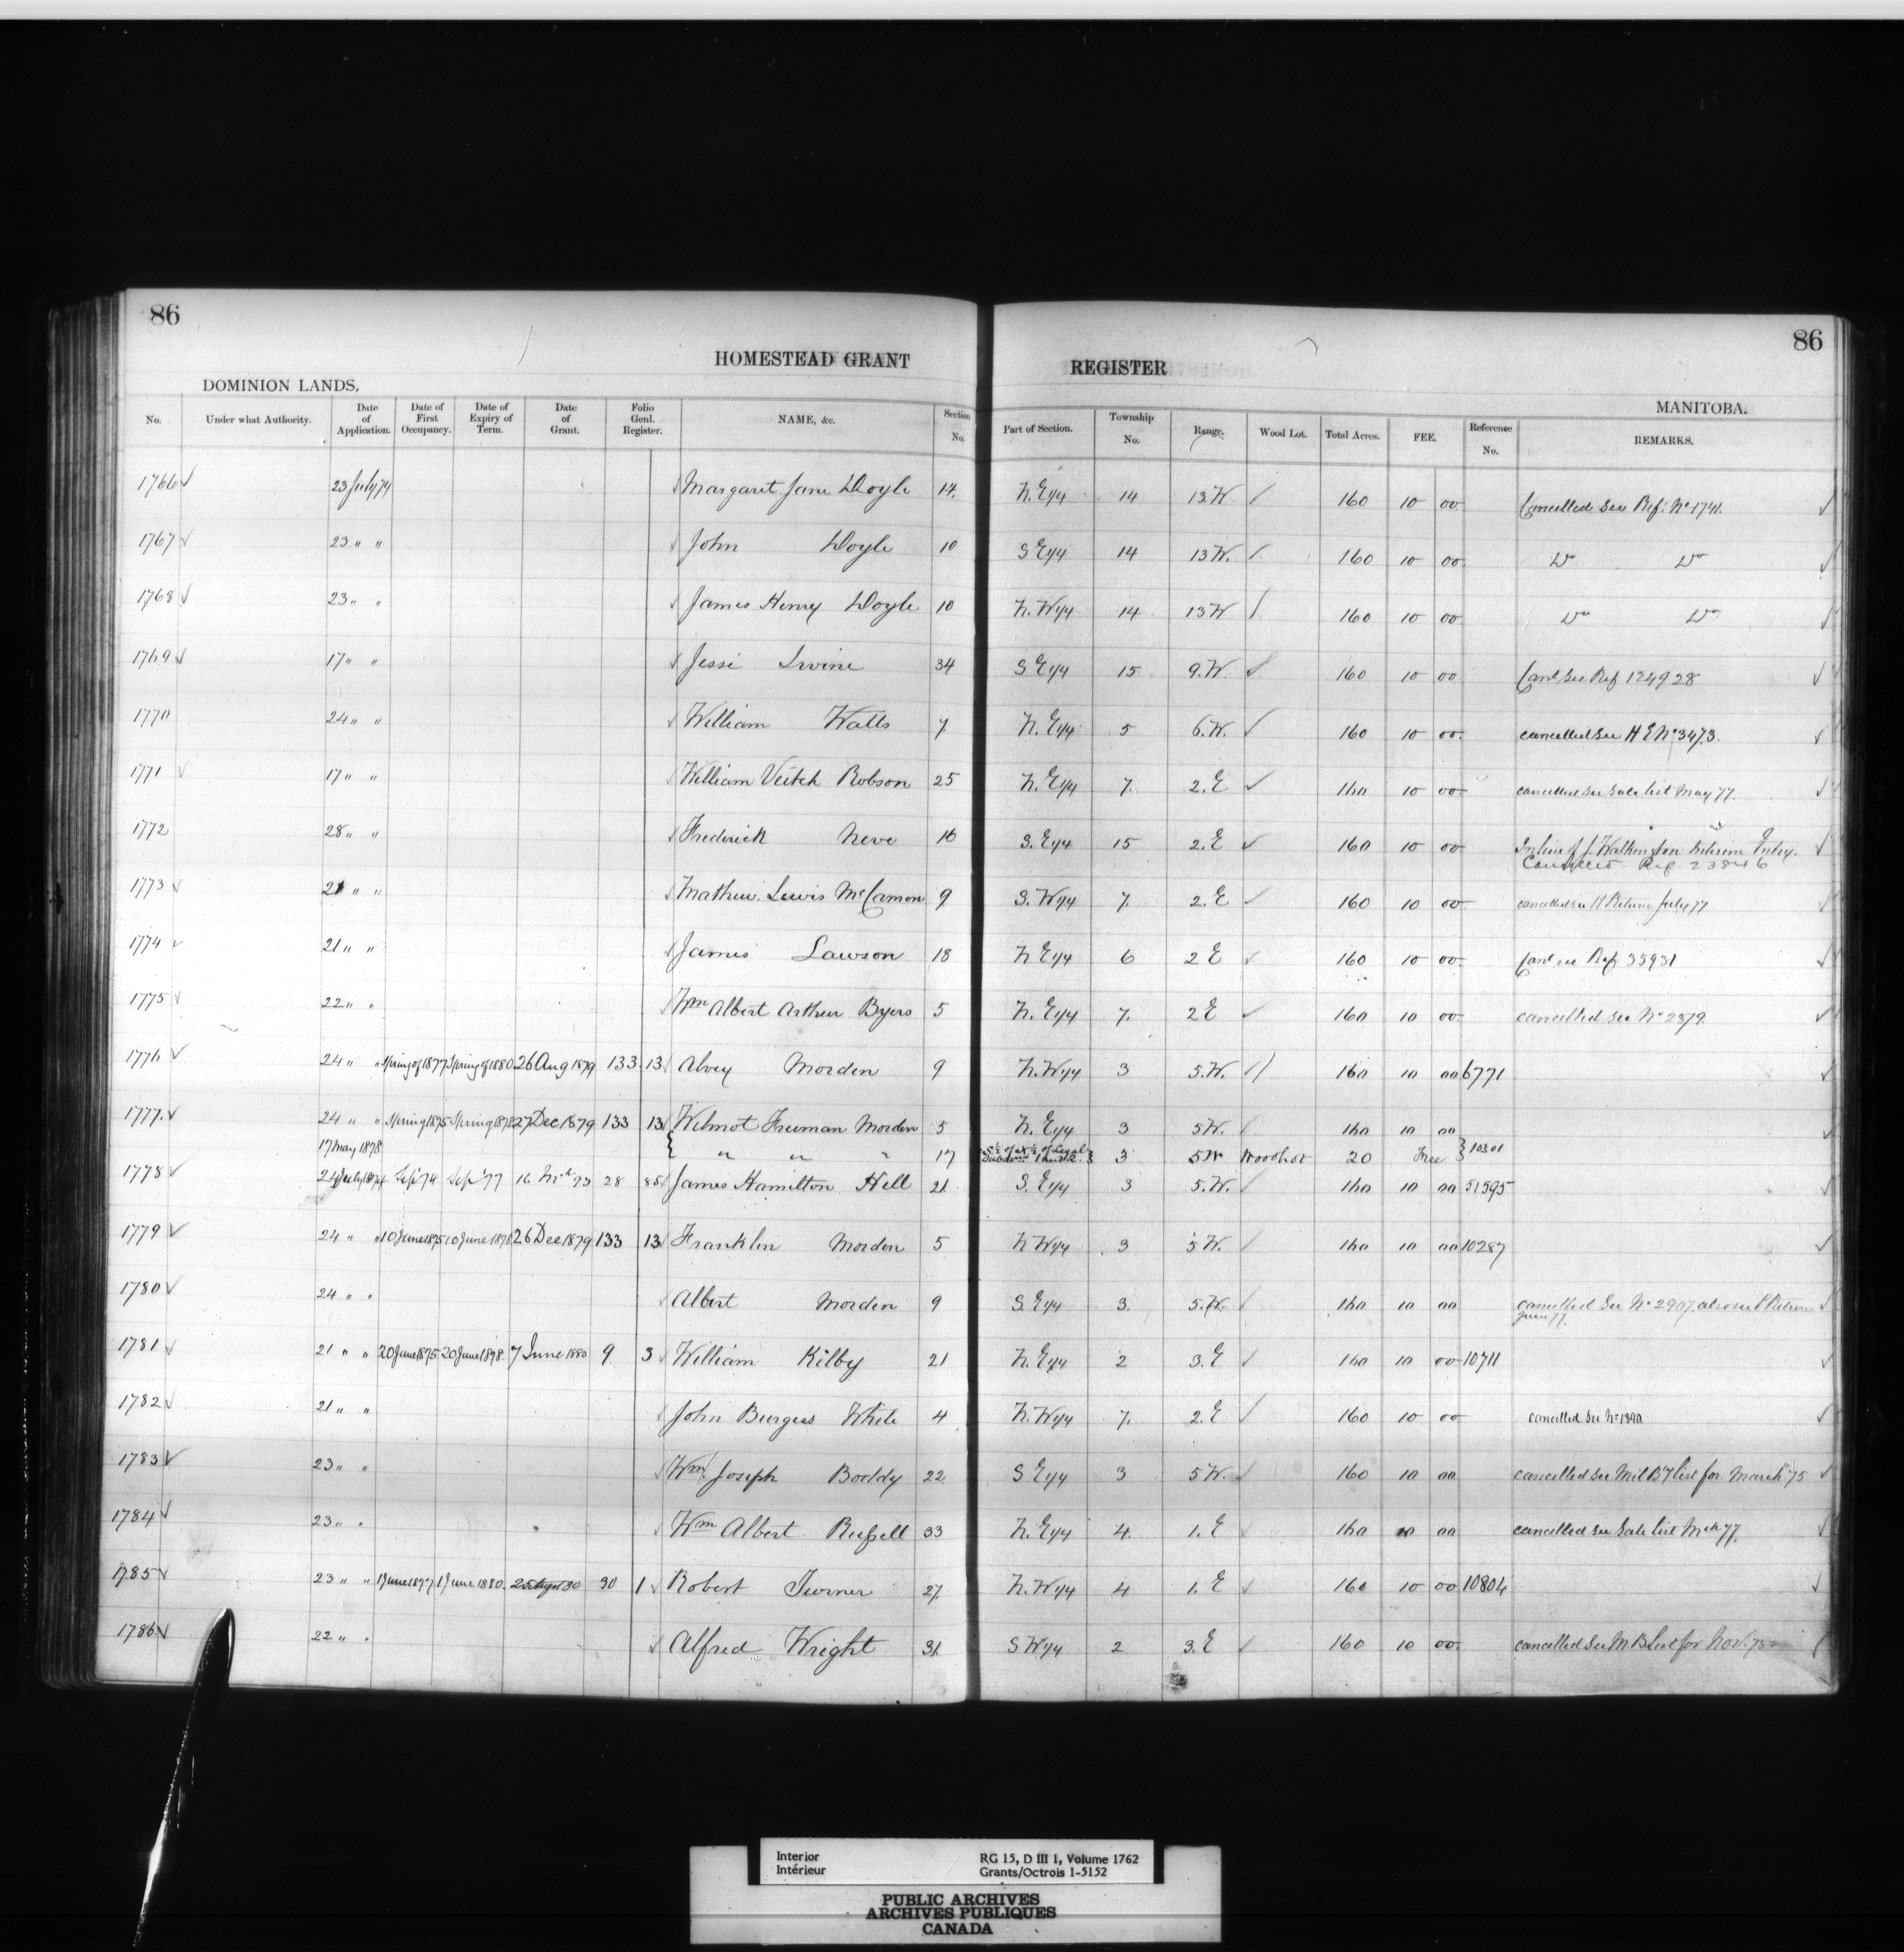 86
86
HOMESTEAD GRANT REGISTER
DOMINION LANDS, MANITOBA.
No. Under what Authority. Date of Application. Date of First Occupancy. Date of Expiry of Term. Date of Grant. Folio Genl. Register. NAME, &c. Section No. Part of Section. Township No. Range. Wood Lot. Total Acres. FEE. Reference No. REMARKS.
1766 ✓ 23 July 74 Margaret Jane Doyle 14. N.E 1/4 14 13 W ✓ 160 10 00 Cancelled See Ref: No 1741. ✓
1767 ✓ 23 " " John Doyle 10 S E 1/4 14 13 W. ✓ 160 10 00 Do Do ✓
1768 ✓ 23 " " James Henry Doyle 10 N.W 1/4 14 13 W ✓ 160 10 00 Do Do ✓
1769 ✓ 17 " " Jessi Irvine 34 S E 1/4 15 9.W. ✓ 160 10 00 Cancd See Ref 124928 ✓
1770 24 " " William Watts 7 N.E 1/4 5 6.W. ✓ 160 10 00. cancelled see H E No 3473. ✓
1771 ✓ 17 " " William Veitch Robson 25 N.E 1/4 7. 2.E ✓ 160 10 00 cancelled see Sale list May 77. ✓
1772 28 " " Frederick Neve 16 S.E 1/4 15 2.E ✓ 160 10 00 In lieu of J. Walkington Interim Entry. ✓
Cancelled Ref. 23846
1773 ✓ 21 " " Mathew Lewis McCamon 9 S.W 1/4 7. 2.E ✓ 160 10 00 cancelled see H Return July 77 ✓
1774 ✓ 21 " " James Lawson 18 N E 1/4 6 2 E ✓ 160 10 00 Cancd see Ref 35931 ✓
1775 ✓ 22 " " Wm Albert Arthur Byers 5 N.E 1/4 7. 2 E ✓ 160 10 00. cancelled see No 2879. ✓
1776 ✓ 24 " " Spring of 1877 Spring of 1880 26 Aug 1879 133 13 Alvey Morden 9 N.W 1/4 3 5.W. ✓ 160 10 00 6771 ✓
1777. ✓ 24 " " Spring 1875 Spring 1878 27 Dec 1879 133 13 Wilmot Freeman Morden 5 N.E 1/4 3 5 W. ✓ 160 10 00 ✓
17 May 1878 { " " " 17 S 1/2 of N 1/2 of Legal } 3 5 W Woodlot 20 Free } 10301
1778 ✓ 24 July 1874 Sep' 74 Sep' 77 16 Mch 93 28 85 James Hamilton Hill 21 S.E 1/4 3 5.W. ✓ 160 10 00 51595 ✓
1779 ✓ 24 " " 10 June 1875 10 June 1878 26 Dec 1879 133 13 Franklin Morden 5 N W 1/4 3 5 W. ✓ 160 10 00 10287 ✓
1780 ✓ 24 " " Albert Morden 9 S.E 1/4 3. 5.W. ✓ 160 10 00 cancelled See No 2907. also see H Return ✓
June 77.
1781 ✓ 21 " " 20 June 1875 20 June 1878. 7 June 1880 9 3 William Kilby 21 N.E 1/4 2 3.E ✓ 160 10 00 10711 ✓
1782 ✓ 21 " " John Burgess White 4 N.W 1/4 7. 2.E ✓ 160 10 00 cancelled See No 1890. ✓
1783 ✓ 23 " " Wm Joseph Boddy 22 S E 1/4 3 5 W. ✓ 160 10 00 cancelled see Mil B'y list for March '75 ✓
1784 ✓ 23 " " Wm Albert Russell 33 N.E 1/4 4. 1.E ✓ 160 10 00 cancelled see Sale list Mch 77. ✓
1785 ✓ 23 " " 1 June 1877 1 June 1880. 30 1 ✓ Robert Turner 27. N.W 1/4 4 1.E ✓ 160 10 00 10804 ✓
1786 ✓ 22 " " Alfred Wright 31. S W 1/4 2 3.E ✓ 160 10 00. cancelled see M.B. List for Nov. 75
Interior RG 15, D III 1, Volume 1762
Intérieur Grants/Octrois 1-5152
PUBLIC ARCHIVES
ARCHIVES PUBLIQUES
CANADA